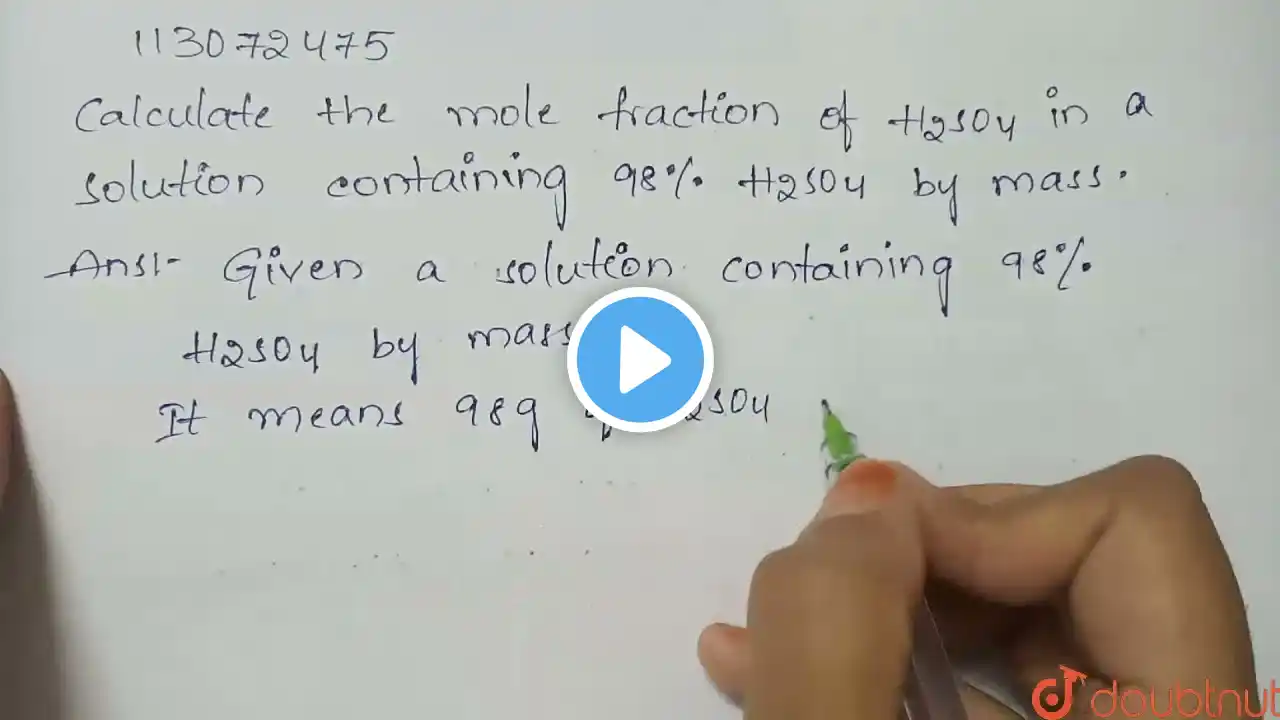 113072475
Calculate the mole fraction of H2SO4 in a
solution containing 98% H2SO4 by mass.
Ans:- Given a solution containing 98%
H2SO4 by mass
It means 98g 2SO4
doubtnut